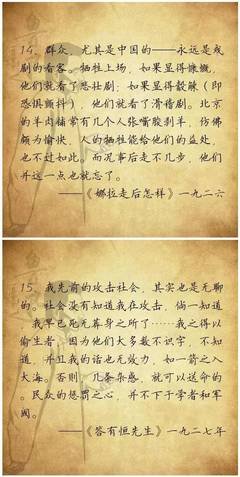 14、群众，尤其是中国的——永远是戏
剧的看客。牺牲上场，如果显得慷慨，
他们就看了悲壮剧；如果显得觳觫（即
恐惧颤抖），他们就看了滑稽剧。北京
的羊肉铺常有几个人张嘴皮剥羊，仿佛
颇为愉快，人的牺牲能给他们的益处，
也不过如此。而况事后走不几步，他们
并这一点也就忘了。
——《娜拉走后怎样》一九二六
15、我先前的攻击社会，其实也是无聊
的。社会没有知道我在攻击，倘一知道
，我早已死无葬身之所了……我之得以
偷生者，因为他们大多数不识字，不知
道，并且我的话也无效力，如一箭之入
大海。否则，几条杂感，就可以送命的
。民众的惩罚之心，并不下于学者和军
阀。
——《答有恒先生》一九二七年